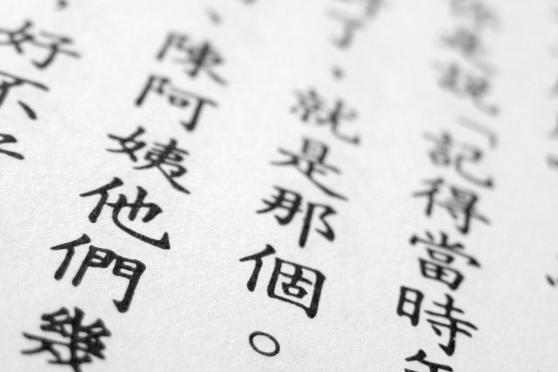 是說「記得當時年
了，就是那個。
、陳阿姨他們幾
，好不